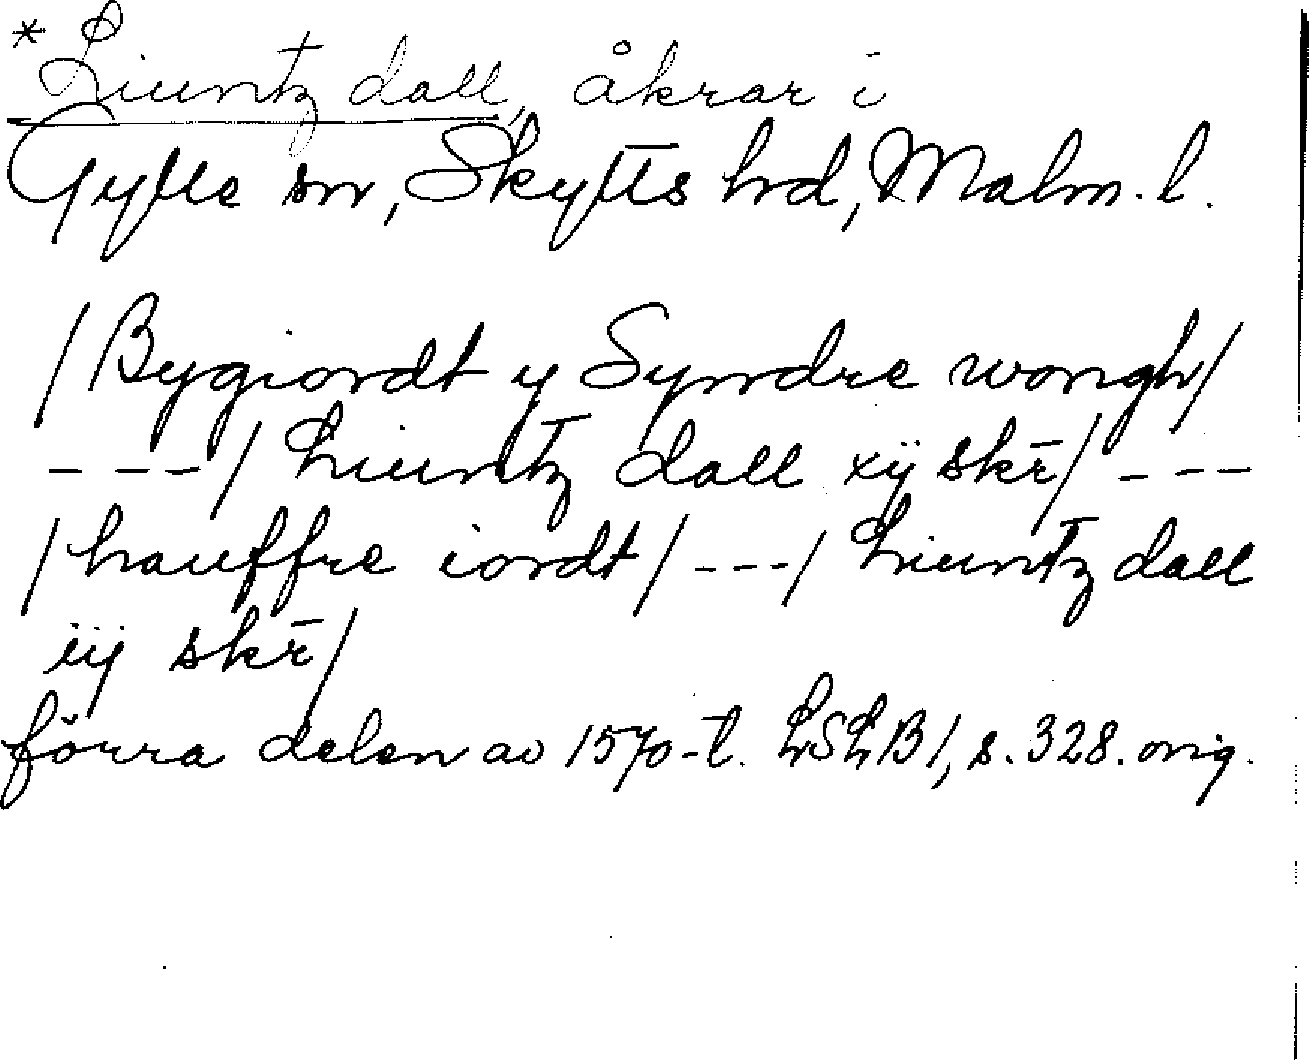 * Liuntz dall, åkrar i
Gylle sn, Skytts hd, Malm. l.
/Bygiordt y Syndre wongh/
---/ Liuntz dall xij skr̄/ ---
/hauffre iordt/ ---/ Liuntz dall
iij skr̄/
förra delen av 1570-t. LSLB1, s. 328. orig.